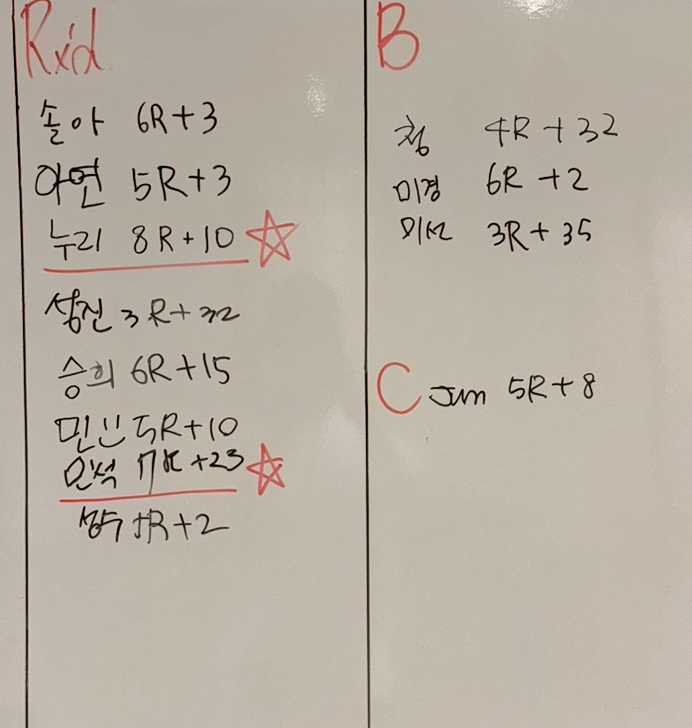 Rx'd
솔아 6R+3
아연 5R+3
누리 8R+10
성진 3R+32
승희 6R+15
민 5R+10
민석 7R+23
성두 5R+2
B
청 4R+32
미경 6R+2
미선 3R+35
C Jun 5R+8